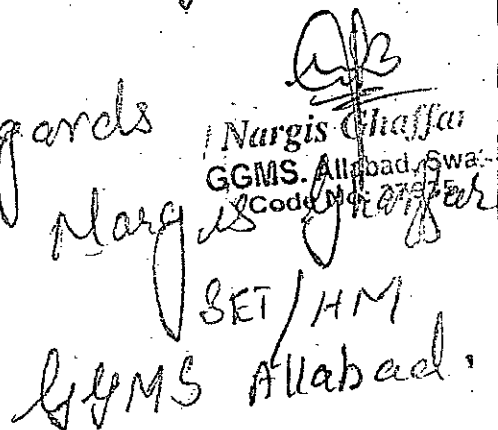 gards
Nargis Ghaffar
GGMS. Allabad, Swa
Code No:
Nargis Ghaffar
SET/HM
GGMS Allabad.